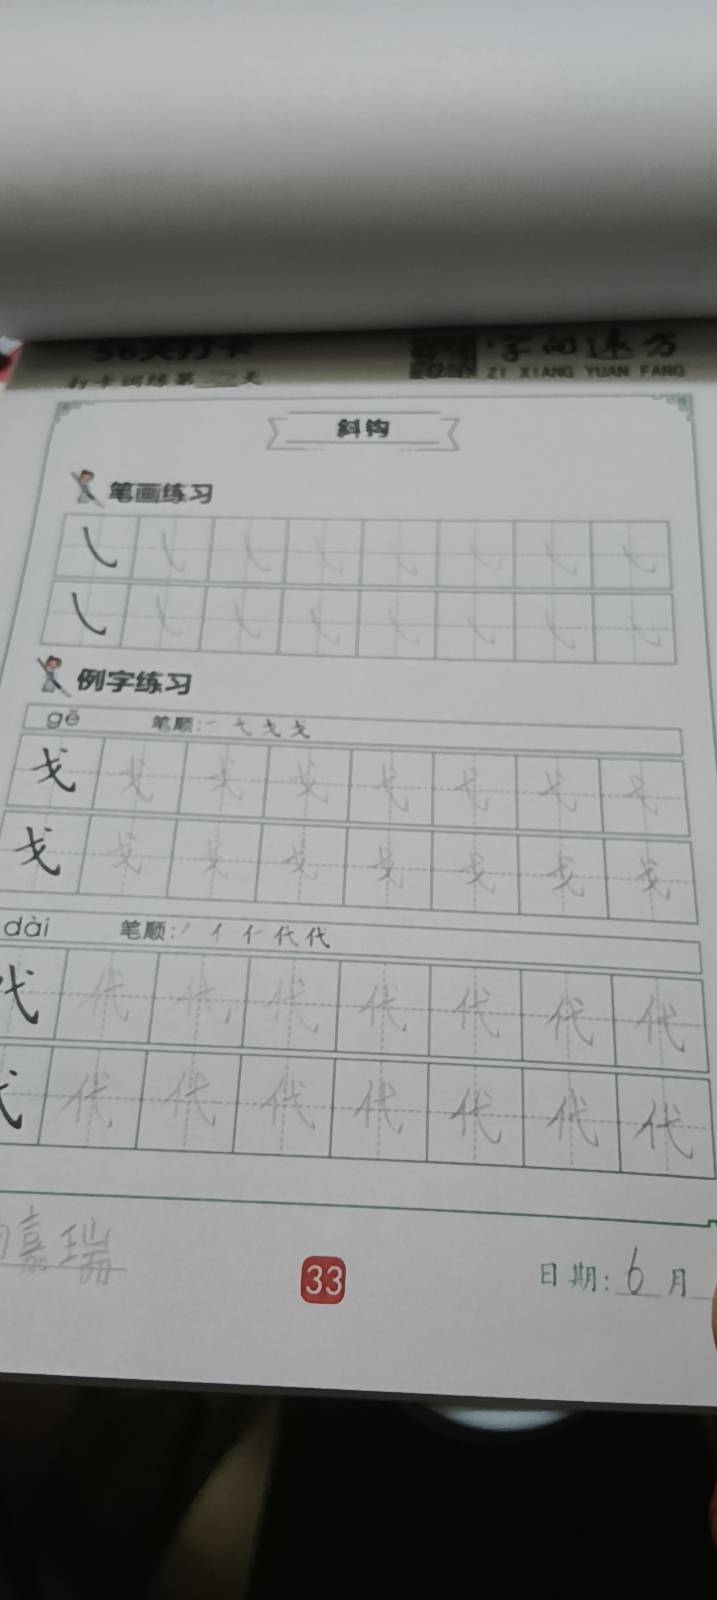 36天打卡
打卡训练第 天
ZI XIANG YUAN FANG
斜钩
笔画练习
㇂
㇂
例字练习
gē 笔顺: 一 弋 戈 戈
戈 戈 戈 戈 戈 戈 戈 戈
戈 戈 戈 戈 戈 戈 戈 戈
dài 笔顺: 丿 亻 仁 代 代
代 代 代 代 代 代 代
代 代 代 代 代 代 代
嘉瑞
33
日期: 6 月